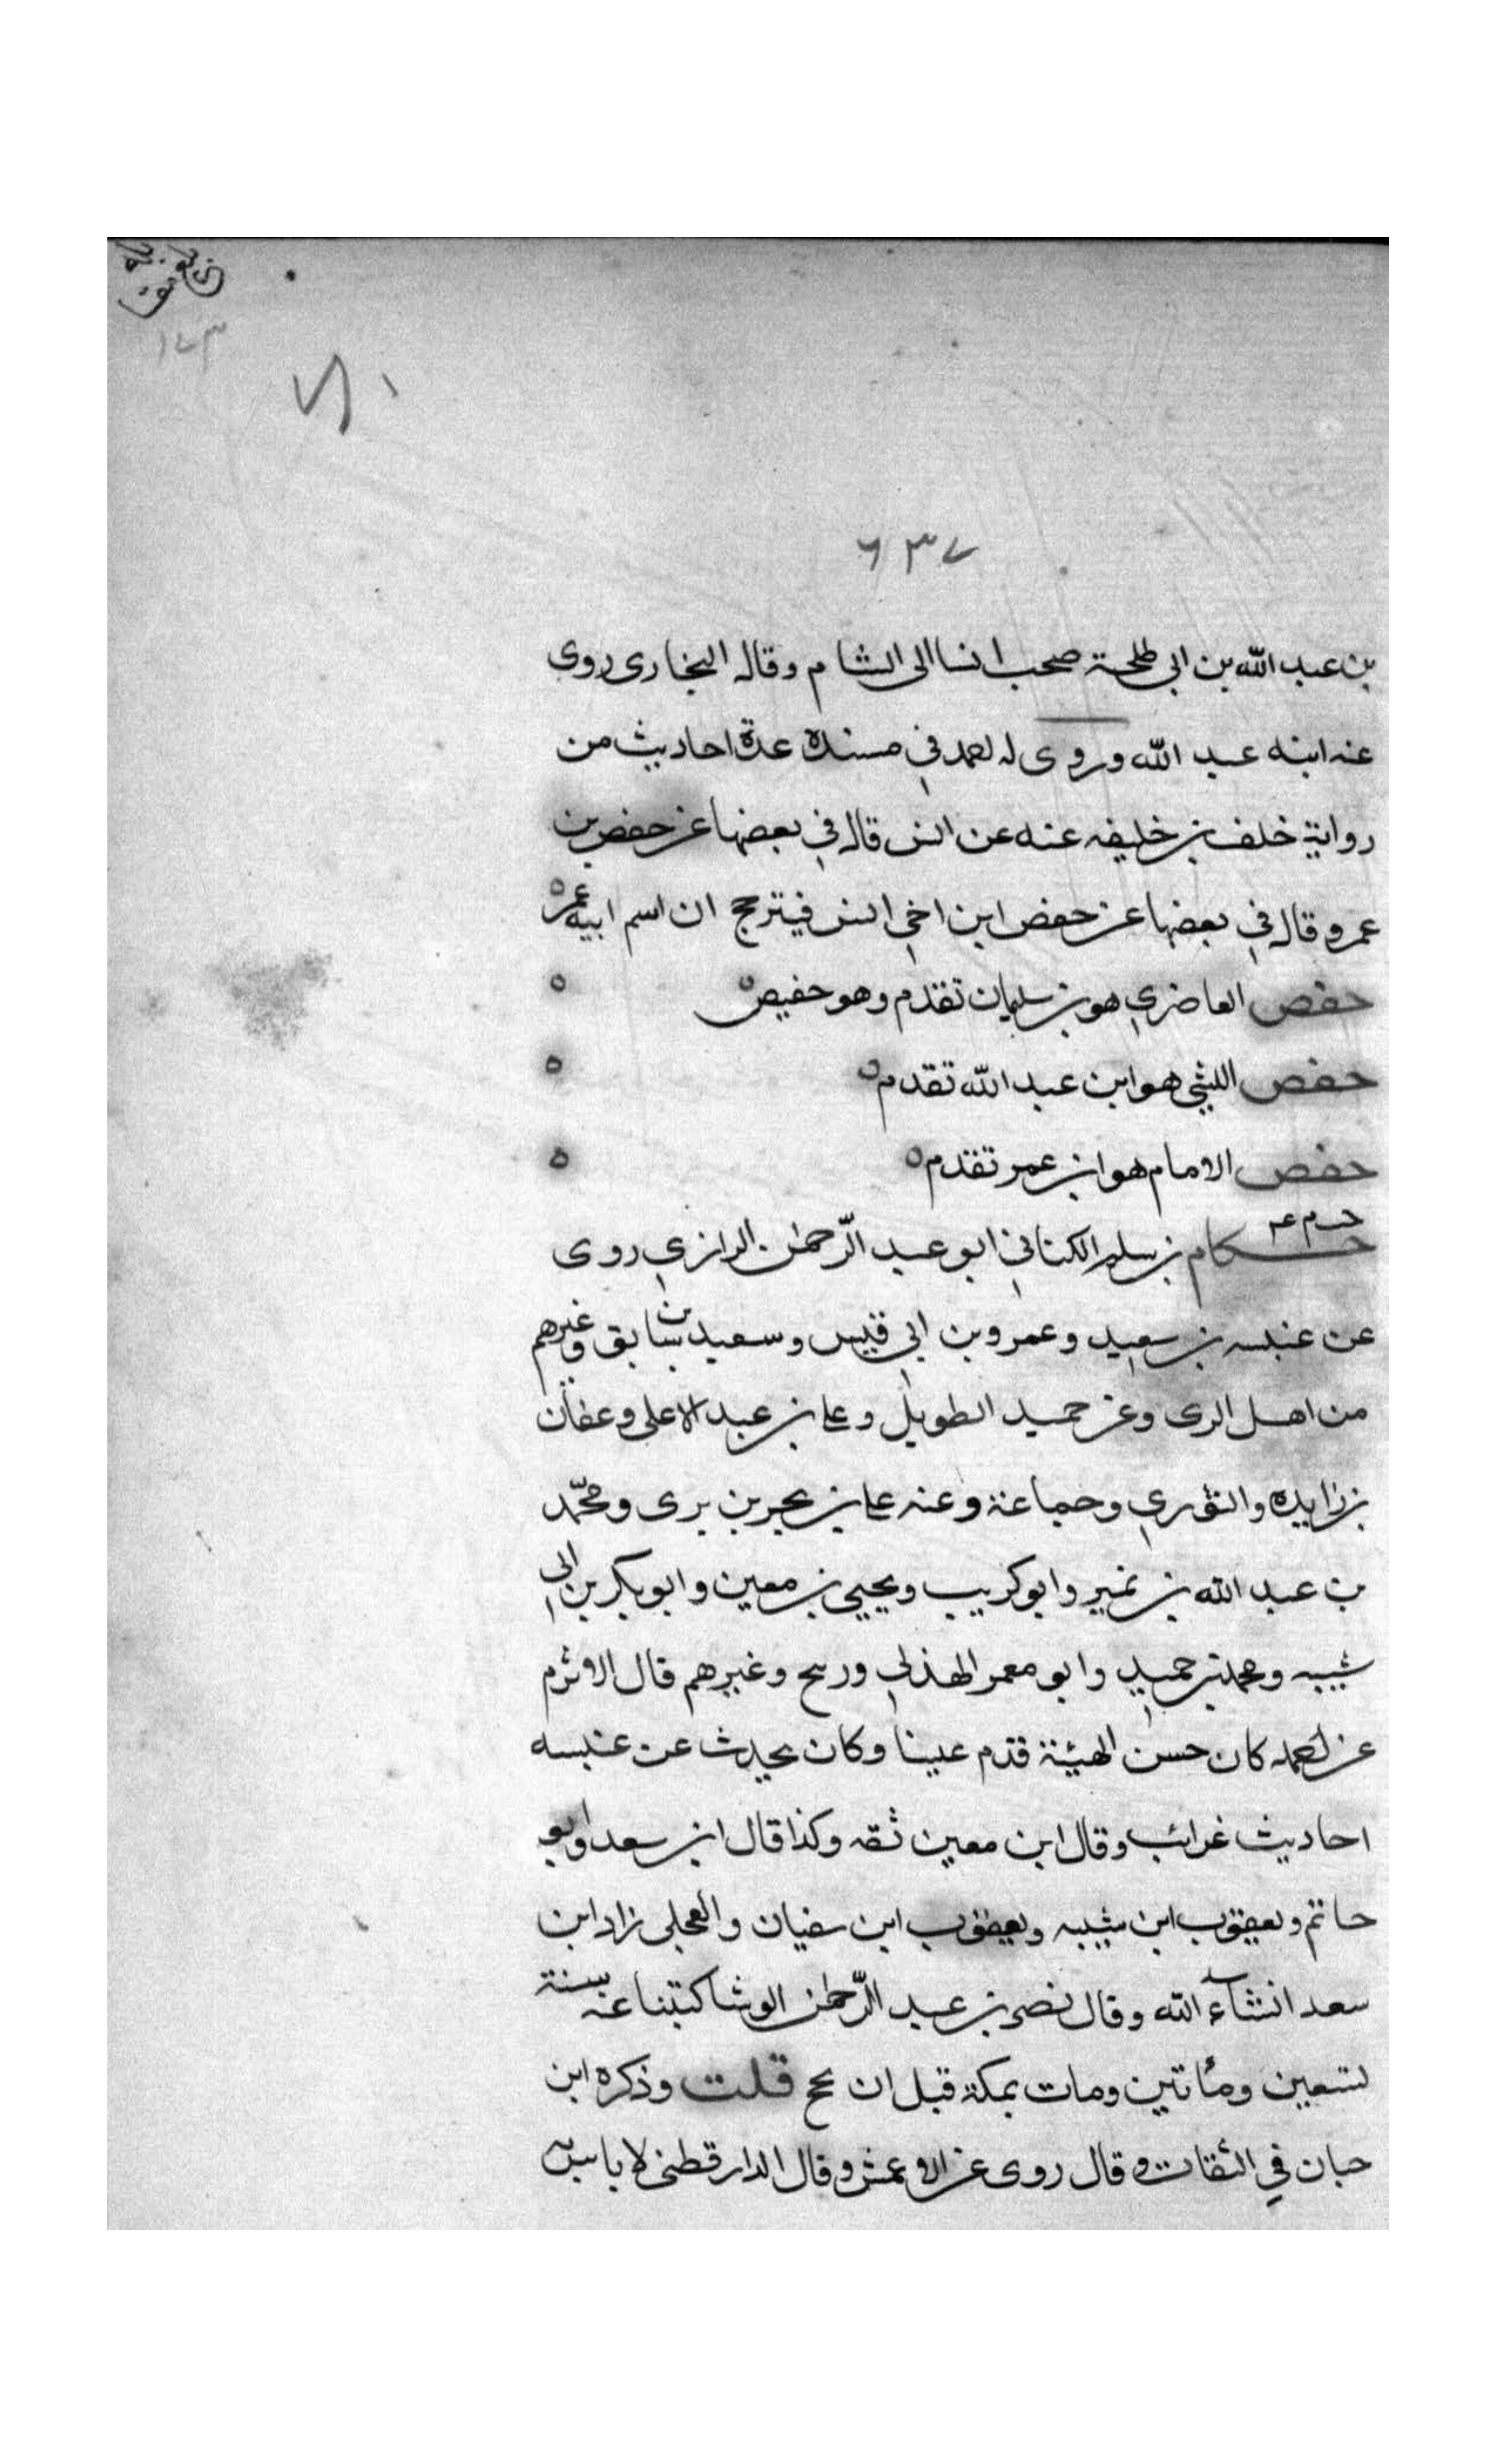 ١٧٣
٦٣٧
بن عبد الله بن ابى طلحة صحب انسا الى الشام وقال البخارى روى
عنه ابنه عبد الله وروى له احمد في مسنده عدة احاديث من
رواية خلف بن خليفه عنه عن انس قال في بعضها عن حفص بن
عمر وقال في بعضها عن حفص ابن اخي انس فيترجح ان اسم ابيه عمر ه
حفص الغاضري هو بن سليمان تقدم وهو حفيص ه
حفص الليثي هو ابن عبد الله تقدم ه
حفص الامام هو ابن عمر تقدم ه
حكام بن سلم الكناني ابو عبد الرّحمن الرازي روى
عن عنبسه بن سعيد وعمرو بن ابي قيس وسعيد بن سابق وغيرهم
من اهل الرى وعن حميد الطويل وعلى بن عبد الاعلى وعفان
بن زايده والثوري وجماعة وعنه على بن بحر بن برى ومحمّد
بن عبد الله بن نمير وابو كريب ويحيى بن معين وابو بكر بن ابي
شيبه ومحمد بن حميد وابو معمر الهذلي وغيرهم قال الاثرم
عن احمد كان حسن الهيئة قدم علينا وكان يحدث عن عنبسه
احاديث غرائب وقال ابن معين ثقه وكذا قال ابن سعد وابو
حاتم ويعقوب ابن شيبه ويعقوب ابن سفيان والعجلى زاد ابن
سعد انشآء الله وقال نصر بن عبد الرّحمن الوشا كتبنا عنه سنة
تسعين ومأتين ومات بمكة قبل ان يحج قلت وذكره ابن
حبان في الثقات وقال روى عن الاعمش وقال الدارقطنى لا باس به